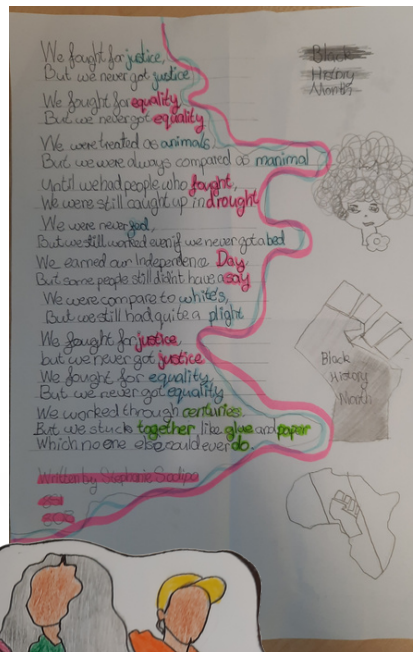 We fought for justice,
But we never got justice
We fought for equality
But we never got equality
We were treated as animals
But we were always compared as manimal
Until we had people who fought,
We were still caught up in drought
We were never god,
But we still worked even if we never got a bed
We earned our Independence Day,
But some people still didint have a say
We were compare to white's,
But we still had quite a plight
We fought for justice,
but we never got justice
We fought for equality,
But we never got equality
We worked through centuries
But we stuck together like glue and paper
Which no one else could ever do.
Written by Stephanie
Black
History
Month
Black
History
Month